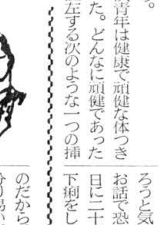 。
青年は健康で頑健な体つき
た。どんなに頑健であった
左する次のような一つの挿
ろうと気
お話で恐
日に二十
下痢をし
のだから